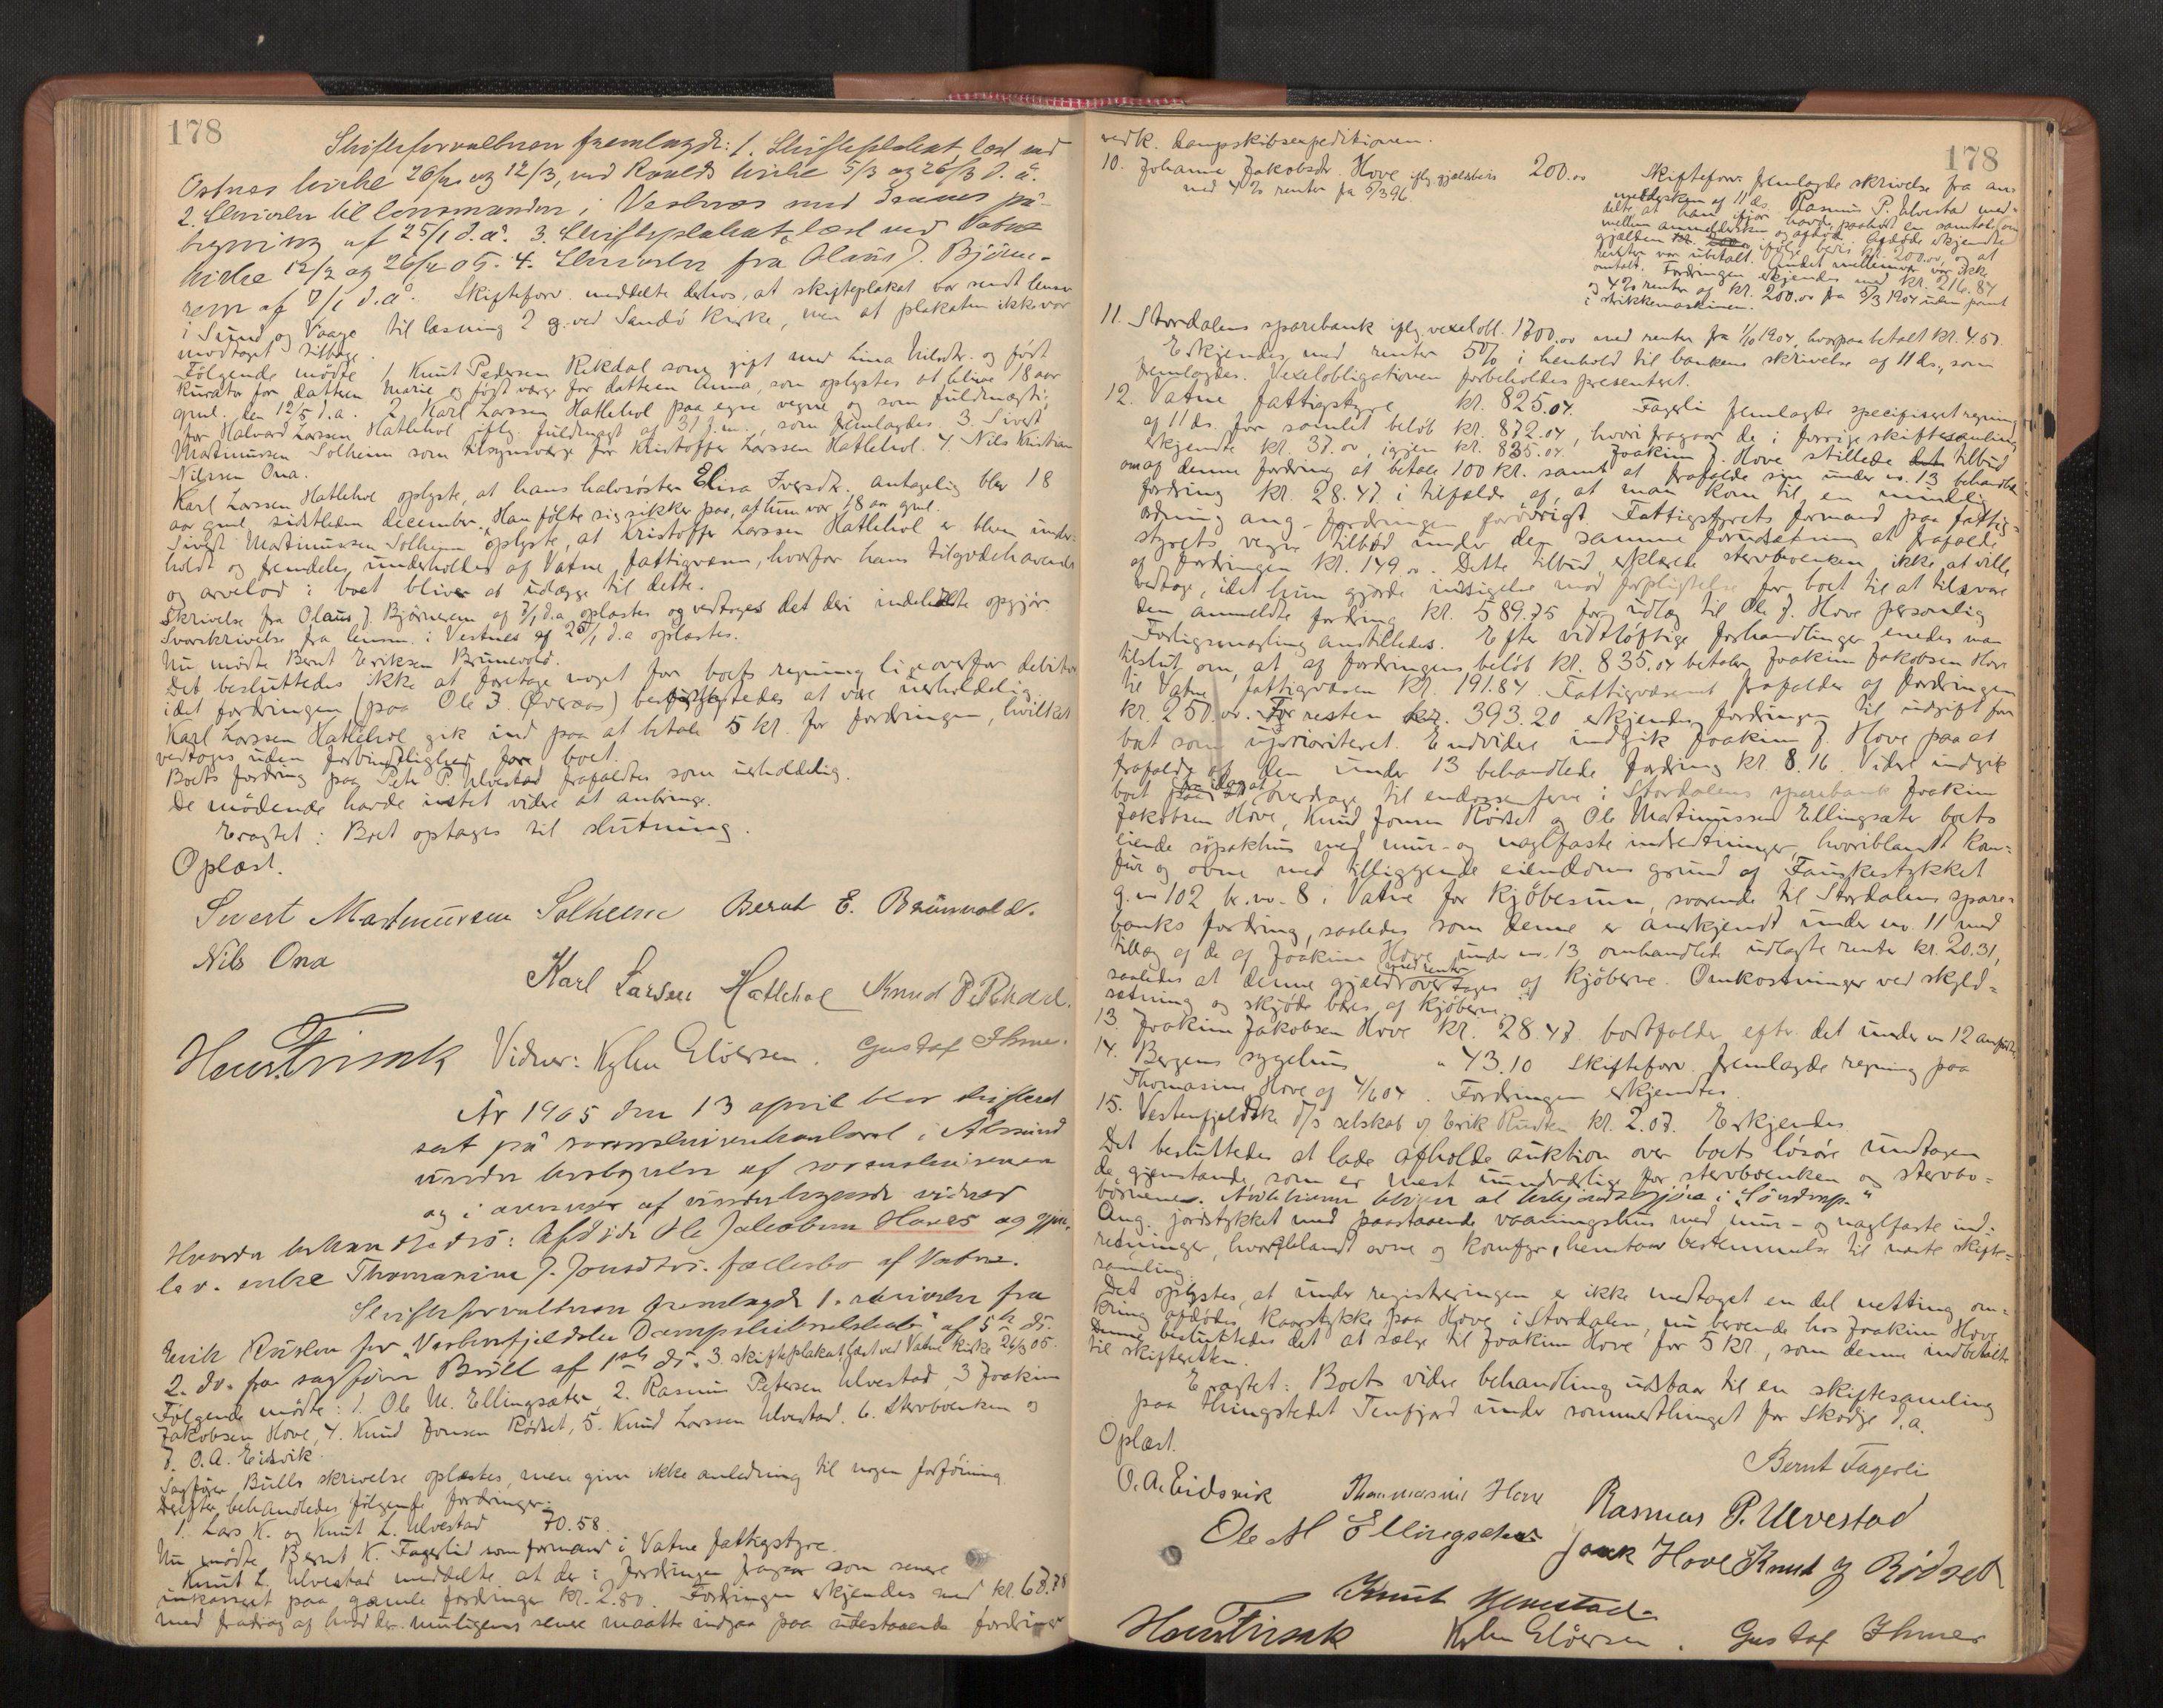 178
Skifteforvalteren fremlagde: 1. Skifteplakat læst ved
Ostnes kirke 26/2 og 12/3, ved Roalds kirke 5/3 og 26/3 d. å.
2. Skrivelse til lensmanden i Vestnes med dennes på-
tegning af 25/1 d.å. 3. Skifteplakat læst ved Vatne
kirke 12/2 og 26/2 05. 4. Skrivelse fra Olaus J. Bjørne-
rem af 7/1 d.å. Skifteforv. meddelte derhos, at skifteplakat var sendt lensm
i Sund og Vaage til læsning 2 g. ved Sandø kirke, men at plakaten ikke var
modtaget tilbage.
Følgende mødte 1 Knut Pedersen Rekdal som gift med Lina Nilsdtr. og født
kurator for datteren Marie og født værge for datteren Anna, som oplystes at blive 18 aar
gml. den 12/5 d.a. 2 Karl Larssen Hatlehol paa egne vegne og som fuldmægtig
for Halvard Larssen Hatlehol iflg. fuldmagt af 31 f.m., som fremlagdes. 3. Sivert
Martinussen Solheim som tilsynsværge for Kristoffer Larssen Hatlehol. 4 Nils Kristian
Nilssen Ona.
Karl Larssen Hatlehol oplyste, at hans halvsøster Elisa Iversdtr. antagelig blev 18
aar gml. sidstleden december. Han følte sig sikker paa, at hun var 18 aar gml.
Sivert Martinussen Solheim oplyste, at Kristoffer Larssen Hatlehol er bleven under-
holdt og fremdeles underholdes af Vatne fattigvæsen, hvorfor hans tilgodehavende
og arvelod i boet bliver at udlægge til dette.
Skrivelse fra Olaus J. Bjørnerem af 7/1 d.a oplæstes og vedtoges det deri indeholdte opgjør.
Svarskrivelse fra lensm. i Vestnes af 25/1 d.a oplæstes.
Nu mødte Bernt Eriksen Brunevold.
Det besluttedes ikke at foretage noget for boets regning ligeoverfor debitor
idet fordringen (paa Ole J. Øveraas) befrygtedes at være uerholdelig.
Karl Larssen Hatlehol gik ind paa at betale 5 kr. for fordringen, hvilket
vedtoges uden forbindtlighed for boet.
Boets fordring paa Peter P. Ulvestad frafaldtes som uerholdelig.
De mødende havde intet videre at anbringe.
Eragtet: Boet optages til slutning.
Oplæst.
Sivert Martinussen Solheim Bernt E. Brunvold.
Nils Ona
Karl Larsen Hatlehol Knud P. Rekdal.
Vidner: Kylen Eløersen. Gustaf Ihme.
År 1905 den 13 april blev skifteret
sat på sorenskriverkontoret i Ålesund
under bestyrelse af sorenskriveren
og i overvær af undertegnede vidner
Hvorda behandledes: Afdøde Ole Jakobsen Hoves og gjen-
lev. enke Thomasine J. Jonsdtrs. fællesbo af Vatne.
Skifteforvalteren fremlagde 1. skrivelse fra
Erik Rusten for "Vestenfjeldske Dampskibsselskab" af 5te ds.
2. do. fra sagfører Bull af 1ste ds. 3. skifteplakat læst ved Vatne kirke 26/3 05.
Følgende mødte: 1. Ole M. Ellingsæter 2. Rasmus Petersen Ulvestad, 3 Joakim
Jakobsen Hove, 4. Knud Jonsen Rødset, 5. Knud Larssen Ulvestad. 6. Stervboenken og
7. O.A. Eidsvik.
Sagfører Bulls skrivelse oplæstes, mere giver ikke anledning til nogen forføining.
Derefter behandledes følgende fordringer.
1. Lars K. og Knut L. Ulvestad 70.58.
Nu mødte Bernt K. Fagerlid som formand i Vatne fattigstyre.
Knut L. Ulvestad meddelte at der i fordringen fragaar som senere
inkasseret paa gamle fordringer kr. 2.80. Fordringen erkjendes med kr. 67.78
med fradrag af hvad der muligens senere maatte indgaa paa udestaaende fordringer
178
vedk. dampskibsexpeditionen.
10. Johanne Jakobsdtr. Hove iflg gjældsbrev 200.00
med 4 % renter fra 5/3 96.
Skifteforv. fremlagde skrivelse fra an-
melderskem af 11 ds. Rasmus P. Ulvestad med-
delte at han ifjor havde paahørt en samtale
mellem anmeldersken og afdøde. Afdøde erkjendte
gjælden ifølge bevis kr. 200.00, og at
renten var ubetalt. Andet mellemvær var ikke
omtalt. Fordringen erkjendes med kr. 216.84
og 4 % renter af kr. 200.00 fra 5/3 1904 uden pant
i strikkemaskinen.
11. Stordalens sparebank iflg vexelobl. 1700.00 med renter fra 1/10 1904, hvorpaa betalt kr. 4.50.
Erkjendes med renter 5 % i henhold til bankens skrivelse af 11 ds., som
fremlagdes. Vexelobligationen forbeholdes presenteret.
12. Vatne fattigstyre kr. 825.04. Fagerli fremlagde specificeret regning
af 11 ds. for samlet beløb kr. 872.04, hvori fragaar de i forrige skiftesamling
erkjendte kr. 37.00, igjen kr. 835.04. Joakim J. Hove stillede tilbud
om af denne fordring at betale 100 kr. samt at frafalde sin under no. 13 behandlede
fordring kr. 28.47 i tilfælde af, at man kom til en mindelig
ordning ang. fordringen forøvrigt. Fattigstyrets formand paa fattig-
styrets vegne tilbød under den samme forudsætning at frafalde
af fordringen kr. 149.00. Dette tilbud erklærede stervboenken ikke at ville
vedtage, idet hun gjorde indsigelse mod forpligtelse for boet til at tilsvare
den anmeldte fordring kr. 589.75 for udlæg til Ole J. Hove personlig
Forligsmægling anstilledes. Efter vidtløftige forhandlinger enedes man
tilslut om, at af fordringens beløb kr. 835.04 betaler Joakim Jakobsen Hove
til Vatne fattigvæsen kr. 191.84. Fattigvæsenet frafalder af fordringen
kr. 250.00. For resten kr. 393.20 erkjendes fordringen til udgift for
boet som uprioriteret. Endvidere indgik Joakim J. Hove paa at
frafalde af den under 13 behandlede fordring kr. 8.16. Videre indgik
boet paa at overdrage til endossenterne i Stordalens sparebank Joakim
Jakobsen Hove, Knud Jonsen Rødset og Ole Martinussen Ellingsæter boets
eiende søpakhus med mur- og naglfaste indredninger, hvoriblandt kom-
fur og ovne med tilliggende eiendoms grund af Fauskestykket
g.no 102 br.no. 8 i Vatne for kjøbesum, svarende til Stordalens spare-
banks fordring, saaledes som denne er anerkjendt under no. 11 med
tillæg af de af Joakim Hove under no. 13 omhandlede udlagte renter kr. 20.31,
saaledes at denne gjæld med renter overtages af kjøberne. Omkostninger ved skyld-
sætning og skjøde bæres af kjøberne.
13. Joakim Jakobsen Hove kr. 28.47 bortfalder efter det under no 12 anførte.
14. Bergens sygehus " 43.10 Skifteforv. fremlagde regning paa
Thomasine Hove af 4/6 04. Fordringen erkjendtes.
15. Vestenfjeldsk d/s selskab v/ Erik Rusten kr. 2.07. Erkjendes
Det besluttedes at lade afholde auktion over boets løsøre undtagen
de gjenstande, som er mest uundværlige for stervboenken og stervbo-
børnene. Auktionen bliver at bekjendtgjøre i "Søndmp."
Ang. jordstykket med paastaaende vaaningshus med mur- og naglfaste ind-
redninger, hvoriblandt ovne og komfyr, henstaar bestemmelse til næste skifte-
samling.
Det oplystes, at under registreringen er ikke medtaget en del netting om-
kring afdødes kaarstykke paa Hove i Stordalen, nu beroende hos Joakim Hove.
Denne besluttedes det at sælge til Joakim Hove for 5 kr., som denne indbetalte
til skifteretten.
Eragtet: Boets videre behandling udstaar til en skiftesamling
paa thingstedet Tenfjord under sommerthinget for Skodje d.a.
Oplæst.
Bernt Fagerli
O.A. Eidsvik Thomasine Hove Rasmus P. Ulvestad
Ole M Ellingsæter Joak Hove Knud J Rødset
Knut Ulvestad
Kylen Eløersen. Gustaf Ihme